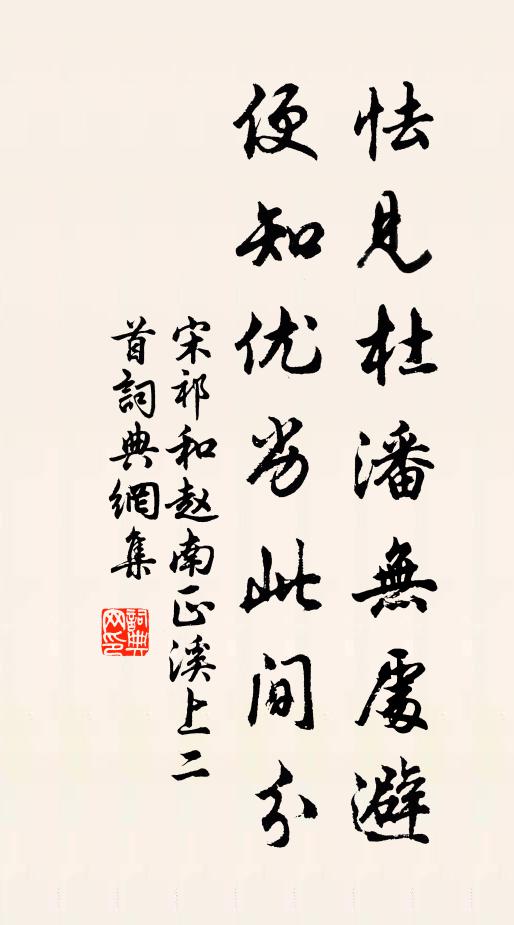 怯見杜潘無處避
便知优劣此间分
宋祁和赵南正溪上二
首詞典網集
詞典網印